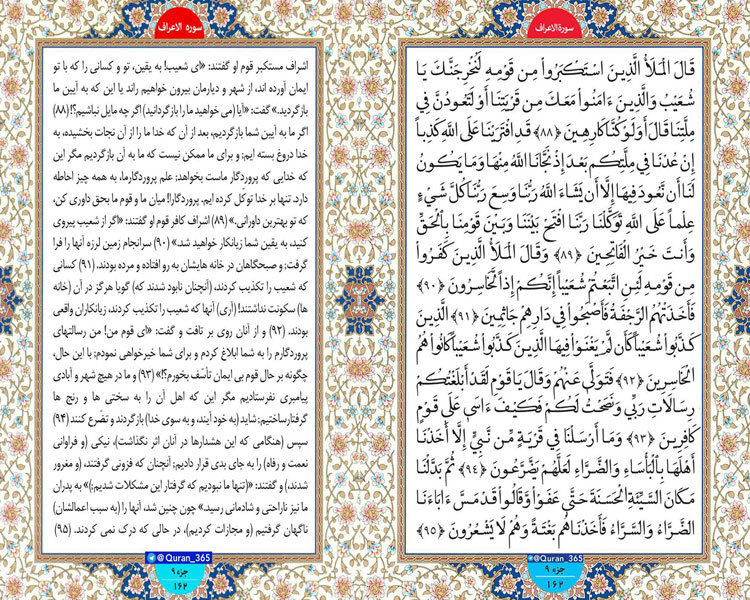 سورة الاعراف
قَالَ الْمَلَأُ الَّذِينَ اسْتَكْبَرُوا مِن قَوْمِهِ لَنُخْرِجَنَّكَ يَا
شُعَيْبُ وَالَّذِينَ ءَامَنُوا مَعَكَ مِن قَرْيَتِنَا أَوْ لَتَعُودُنَّ فِي
مِلَّتِنَا قَالَ أَوَلَوْ كُنَّا كَارِهِينَ ﴿۸۸﴾ قَدِ افْتَرَيْنَا عَلَى اللَّهِ كَذِباً
إِنْ عُدْنَا فِي مِلَّتِكُم بَعْدَ إِذْ نَجَّانَا اللَّهُ مِنْهَا وَمَا يَكُونُ
لَنَا أَن نَّعُودَ فِيهَا إِلَّا أَن يَشَاءَ اللَّهُ رَبُّنَا وَسِعَ رَبُّنَا كُلَّ شَيْءٍ
عِلْماً عَلَى اللَّهِ تَوَكَّلْنَا رَبَّنَا افْتَحْ بَيْنَنَا وَبَيْنَ قَوْمِنَا بِالْحَقِّ
وَأَنتَ خَيْرُ الْفَاتِحِينَ ﴿۸۹﴾ وَقَالَ الْمَلَأُ الَّذِينَ كَفَرُوا
مِن قَوْمِهِ لَئِنِ اتَّبَعْتُمْ شُعَيْباً إِنَّكُمْ إِذاً لَّخَاسِرُونَ ﴿۹۰﴾
فَأَخَذَتْهُمُ الرَّجْفَةُ فَأَصْبَحُوا فِي دَارِهِمْ جَاثِمِينَ ﴿۹۱﴾ الَّذِينَ
كَذَّبُوا شُعَيْباً كَأَن لَّمْ يَغْنَوْا فِيهَا الَّذِينَ كَذَّبُوا شُعَيْباً كَانُوا هُمُ
الْخَاسِرِينَ ﴿۹۲﴾ فَتَوَلَّى عَنْهُمْ وَقَالَ يَا قَوْمِ لَقَدْ أَبْلَغْتُكُمْ
رِسَالَاتِ رَبِّي وَنَصَحْتُ لَكُمْ فَكَيْفَ ءَاسَى عَلَى قَوْمٍ
كَافِرِينَ ﴿۹۳﴾ وَمَا أَرْسَلْنَا فِي قَرْيَةٍ مِّن نَّبِيٍّ إِلَّا أَخَذْنَا
أَهْلَهَا بِالْبَأْسَاءِ وَالضَّرَّاءِ لَعَلَّهُمْ يَضَّرَّعُونَ ﴿۹۴﴾ ثُمَّ بَدَّلْنَا
مَكَانَ السَّيِّئَةِ الْحَسَنَةَ حَتَّى عَفَوْا وَّقَالُوا قَدْ مَسَّ ءَابَاءَنَا
الضَّرَّاءُ وَالسَّرَّاءُ فَأَخَذْنَاهُم بَغْتَةً وَهُمْ لَا يَشْعُرُونَ ﴿۹۵﴾
@Quran_365
جزء ۹
۱۶۲
سوره الاعراف
اشراف مستکبر قوم او گفتند: «ای شعیب! به یقین، تو و کسانی را که با تو
ایمان آورده اند، از شهر و دیارمان بیرون خواهیم راند یا این که به آیین ما
بازگردید.» گفت: «آیا (می خواهید ما را بازگردانید) اگر چه مایل نباشیم؟! (۸۸)
اگر ما به آیین شما بازگردیم، بعد از آن که خدا ما را از آن نجات بخشیده، به
خدا دروغ بسته ایم؛ و برای ما ممکن نیست که ما به آن بازگردیم مگر این
که خدایی که پروردگار ماست بخواهد؛ علم پروردگارما، به همه چیز احاطه
دارد. تنها بر خدا توکل کرده ایم. پروردگارا! میان ما و قوم ما بحق داوری کن،
که تو بهترین داورانی.» (۸۹) اشراف کافر قوم او گفتند: «اگر از شعیب پیروی
کنید، به یقین شما زیانکار خواهید شد.» (۹۰) سرانجام زمین لرزه آنها را فرا
گرفت؛ و صبحگاهان در خانه هایشان به رو افتاده و مرده بودند. (۹۱) کسانی
که شعیب را تکذیب کردند، (آنچنان نابود شدند که) گویا هرگز در آن (خانه
ها) سکونت نداشتند! (آری) آنها که شعیب را تکذیب کردند، زیانکاران واقعی
بودند. (۹۲) و از آنان روی بر تافت و گفت: «ای قوم من! من رسالتهای
پروردگارم را به شما ابلاغ کردم و برای شما خیرخواهی نمودم؛ با این حال،
چگونه بر حال قوم بی ایمان تأسّف بخورم؟!» (۹۳) و ما در هیچ شهر و آبادی
پیامبری نفرستادیم مگر این که اهل آن را به سختی ها و رنج ها
گرفتارساختیم؛ شاید (به خود آیند، و به سوی خدا) بازگردند و تضّرع کنند (۹۴)
سپس (هنگامی که این هشدارها در آنان اثر نگذاشت)، نیکی (و فراوانی
نعمت و رفاه) را به جای بدی قرار دادیم؛ آنچنان که فزونی گرفتند، (و مغرور
شدند)، و گفتند: «(تنها ما نبودیم که گرفتار این مشکلات شدیم؛) به پدران
ما نیز ناراحتی و شادمانی رسید.» چون چنین شد، آنها را (به سبب اعمالشان)
ناگهان گرفتیم (و مجازات کردیم)، در حالی که درک نمی کردند. (۹۵)
@Quran_365
جزء ۹
۱۶۲